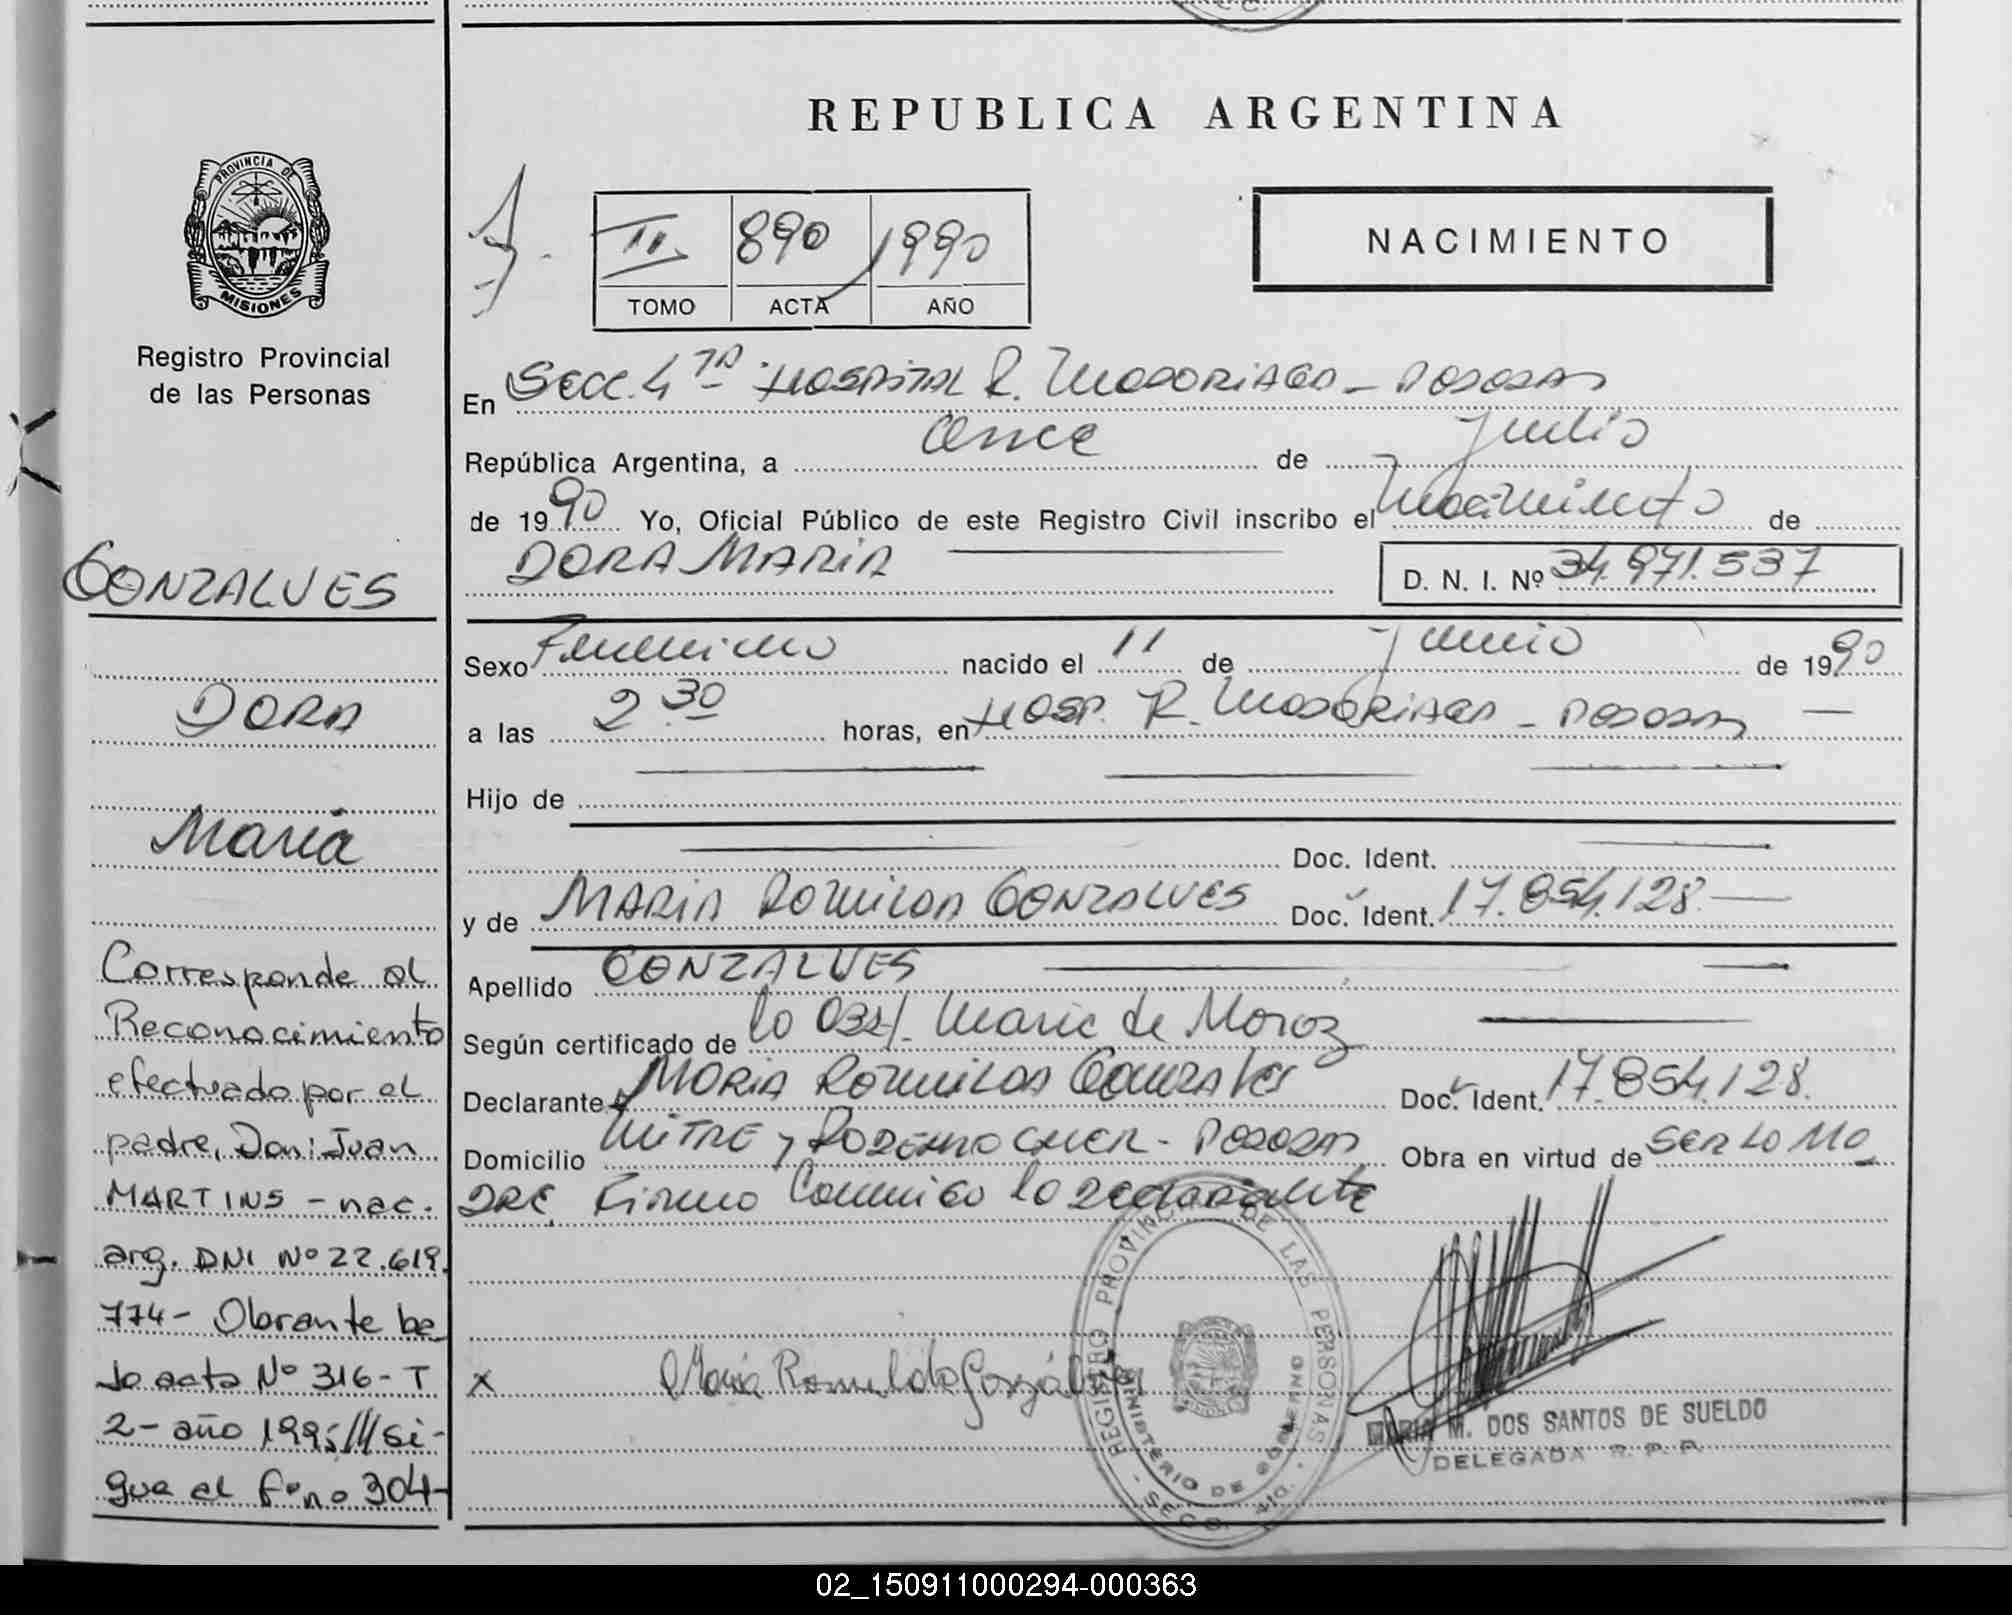 REPUBLICA ARGENTINA
PROVINCIA DE
MISIONES
Registro Provincial
de las Personas
II 890 1990
TOMO ACTA AÑO
NACIMIENTO
En Secc. 4ta Hospital R. Madariaga - Posadas
República Argentina, a Once de Julio
de 1990 Yo, Oficial Público de este Registro Civil inscribo el Nacimiento de
DORA MARIA
D. N. I. Nº 34.971.537
Sexo Femenino nacido el 11 de Junio de 1990
a las 2 30 horas, en Hosp. R. Madariaga - Posadas —
Hijo de
Doc. Ident.
y de MARIA ROMILDA GONZALVES Doc. Ident. 17.854.128.—
Apellido GONZALVES
Según certificado de la Obst. Maria de Moroz
Declarante MARIA ROMILDA Gonzalves Doc. Ident. 17.854.128.
Domicilio MITRE y - POSADAS Obra en virtud de SER LA MA
DRE, Firma Conmigo la declarante
x María Romilda Gonzálves
REGISTRO PROVINCIAL DE LAS PERSONAS
MINISTERIO DE GOBIERNO
SECC. 4ta.
MARIA M. DOS SANTOS DE SUELDO
DELEGADA R. P. P.
GONZALVES
DORA
María
Corresponde al
Reconocimiento
efectuado por el
padre, Don: Juan
MARTINS - nac.
arg. DNI Nº 22.619.
774 - Obrante ba
jo acta Nº 316 - T
2 - año 1995/// si-
gue al fº nº 304-
02_150911000294-000363